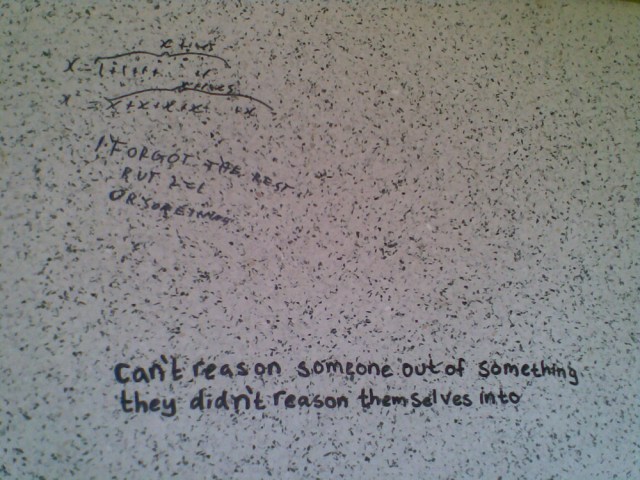 x times
x = 1+1+1+ ... +1
x times
x² = x+x+x+x ... +x
I FORGOT THE REST
BUT 2=1
OR SOMETHING
Can't reason someone out of something
they didn't reason themselves into